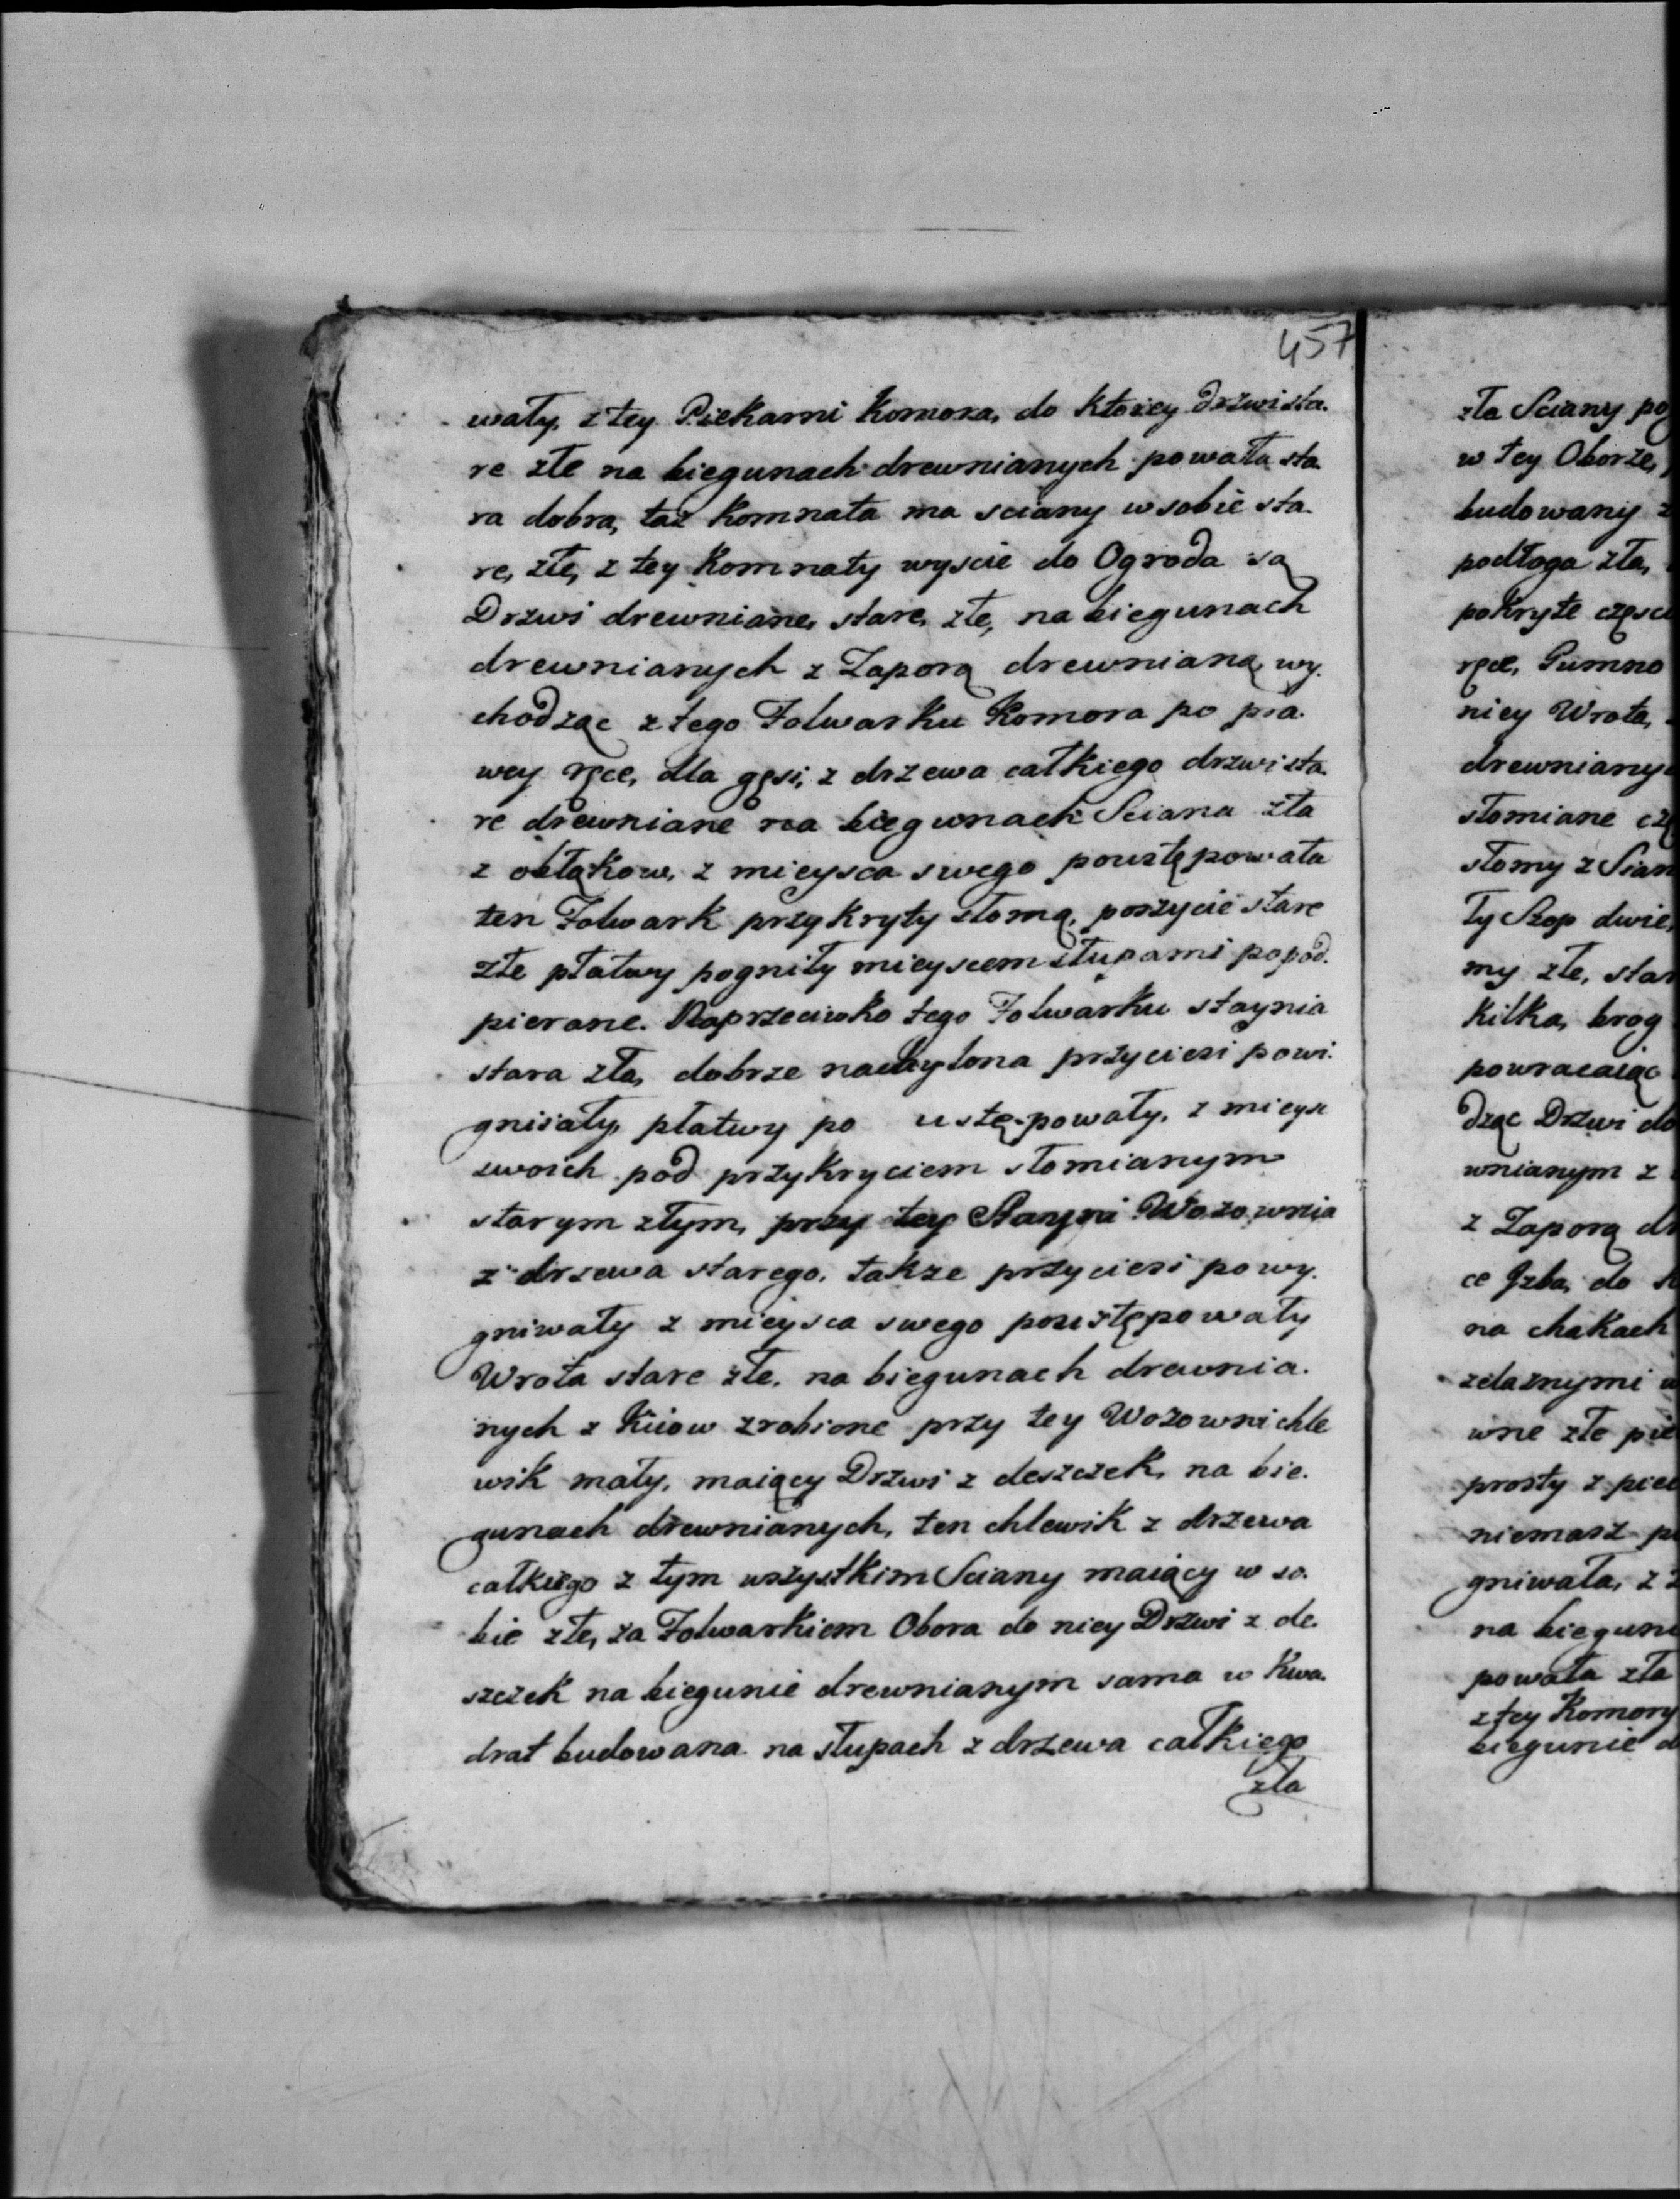 457
wały, z tey Piekarni Komora, do ktorey drzwi sta.
re złe na biegunach drewnianych powała sta.
ra dobra, taż Komnata ma sciany w sobie sta.
re, złe, z tey Komnaty wyscie do Ogroda są
Drzwi drewniane, stare, złe, na biegunach
drewnianych z Zaporą drewnianą, wy.
chodząc z tego Folwarku Komora po pra.
wey ręce, dla gęsi, z drzewa całkiego drzwi sta.
re drewniane na biegunach Sciana zła
z obłąkow, z mieysca swego poustępowała
ten Folwark przykryty słomą, poszycie stare
złe płatwy pogniły mieyscem słupami popod.
pierane. Naprzeciwko tego Folwarku staynia
stara zła, dobrze nachylona przyciesi powi.
gniiały, płatwy po ustę-powały, z mieysc
swoich pod przykryciem słomianym
starym złym, przy tey Stayni Wozownia
z drzewa starego, takze przyciesi powy.
gniwały z mieysca swego poustępowały
Wrota stare złe, na biegunach drewnia.
nych z Kiiow zrobione przy tey Wozowni chle
wik mały, maiący Drzwi z deszczek, na bie.
gunach drewnianych, ten chlewik z drzewa
całkiego z tym wszystkim Sciany maiący w so.
bie złe, za Folwarkiem Obora do niey Drzwi z de.
szczek na biegunie drewnianym sama w Kwa.
drat budowana na słupach z drzewa całkiego
zła
zła Sciany
w tey Oborze,
budowany
podłoga zła,
pokryte
ręce, Gumno
niey Wrota,
słomiane
słomy z
ty Szop dwie,
my złe,
Kilka, brog
powracaiąc
dząc Drzwi do
wnianym z
z Zaporą
ce Izba, do
na chakach
zelaznymi
wne złe
prosty z
niemasz
gniwała, z
na
powała zła
z tey Komory
biegunie